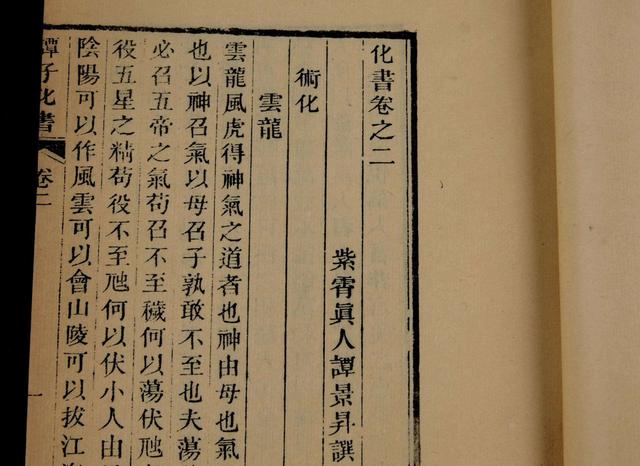 化書卷之二
紫霄眞人譚景昇譔
術化
雲龍
雲龍風虎得神氣之道者也神由母也氣
也以神召氣以母召子孰敢不至也夫蕩
必召五帝之氣苟召不至穢何以蕩伏虺
役五星之精苟役不至虺何以伏小人由
陰陽可以作風雲可以會山陵可以拔江
譚子化書 卷二 一